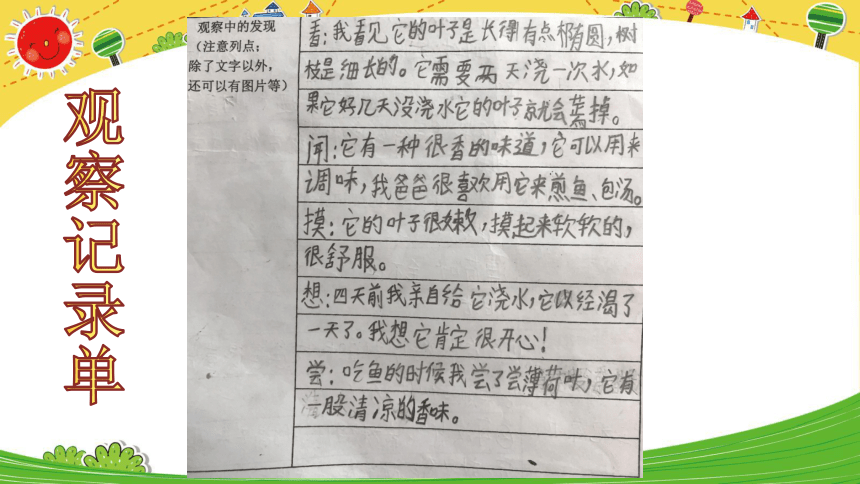 观察记录单
观察中的发现
(注意列点;
除了文字以外,
还可以有图片等)
看:我看见它的叶子是长得有点椭圆,树
枝是细长的。它需要两天浇一次水,如
果它好几天没浇水它的叶子就会蔫掉。
闻:它有一种很香的味道,它可以用来
调味,我爸爸很喜欢用它来煎鱼、包汤。
摸:它的叶子很嫩,摸起来软软的,
很舒服。
想:四天前我亲自给它浇水,它以经渴了
一天了。我想它肯定很开心!
尝:吃鱼的时候我尝了尝薄荷叶,它有
一股清凉的香味。